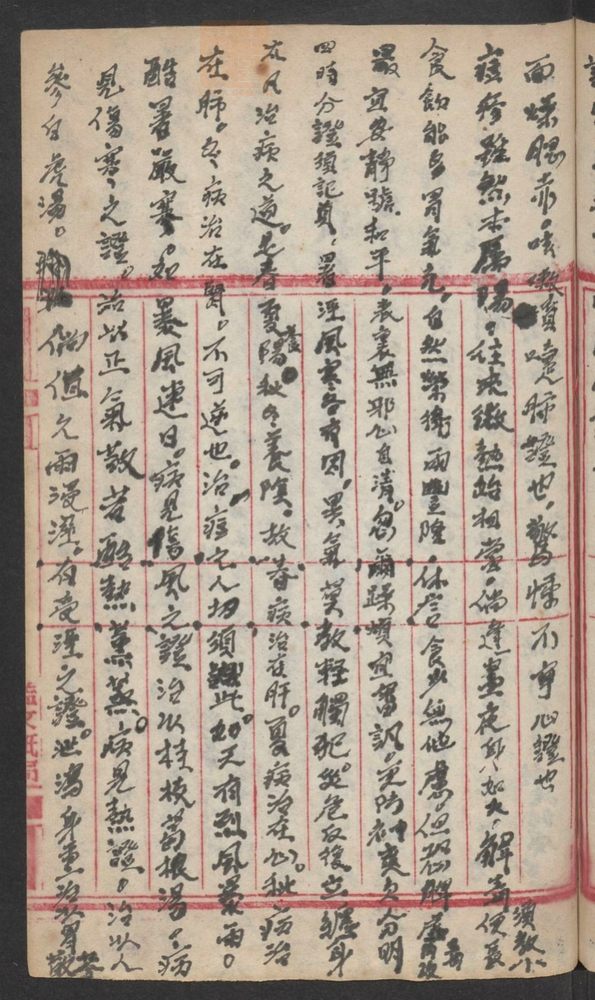 面燥腮赤。咳嗽噴嚏肺證也。驚悸不寧心證也
痘疹雖然本屬陽。往來微熱始相當。倘逢晝夜身如火。解毒便宜須教
食飲能多胃氣充。自然榮衛兩豐隆。休言食少無他慮。但恐脾虛
最宜安靜驗和平。表裏無邪心自清。忽爾躁煩
四時分證須記真。暑溼風寒各有因。異氣莫教輕觸犯。安危反復立纏身
大凡治病之道。春夏養陽秋冬養陰。故春病治在肝。夏病治在心。秋病治
在肺。冬病治在腎。不可逆也。治痘之人切須知此。如天有烈風暴雨。
酷暑嚴寒。如暴風連日。病見傷風之證治以桂枝葛根湯。病
見傷寒之證。治以正氣散若酷熱薰蒸。病見熱證。治以人
參白虎湯。倘值久雨浸淫。有受溼之證。泄瀉身重治以胃苓散